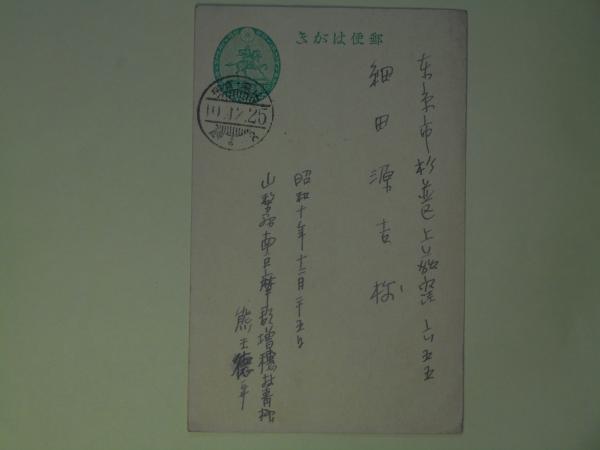 きかは便郵
10.12.25
東京市杉並区上荻窪六五五
細田源吉様
昭和十年十二月二十五日
山梨県南巨摩郡増穂村青柳
熊王徳平